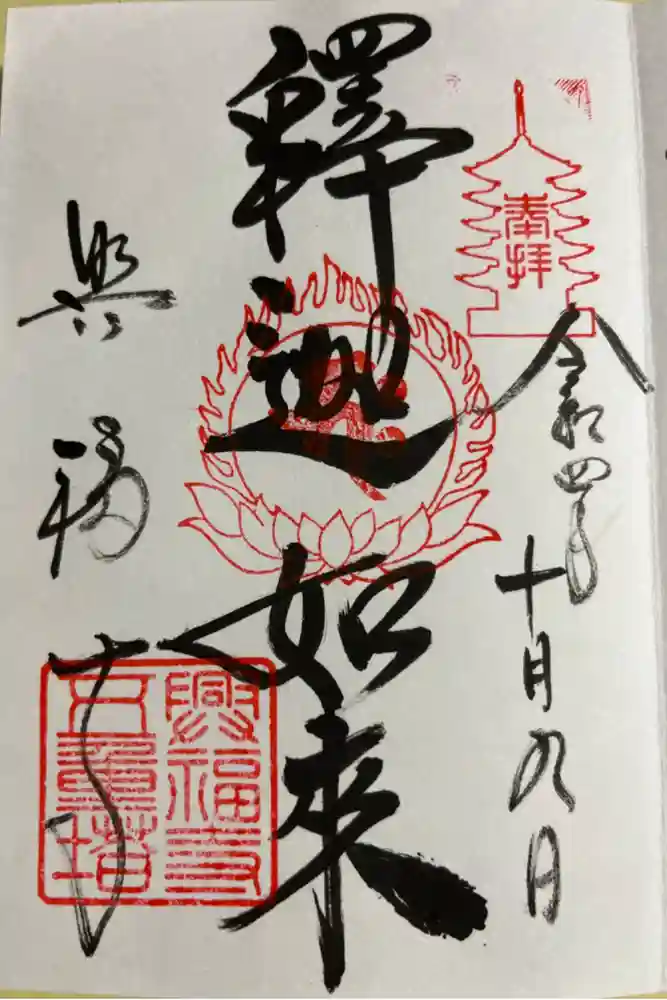 奉拝
令和四年
十月九日
釋迦如来
興福寺
興福寺
五重塔